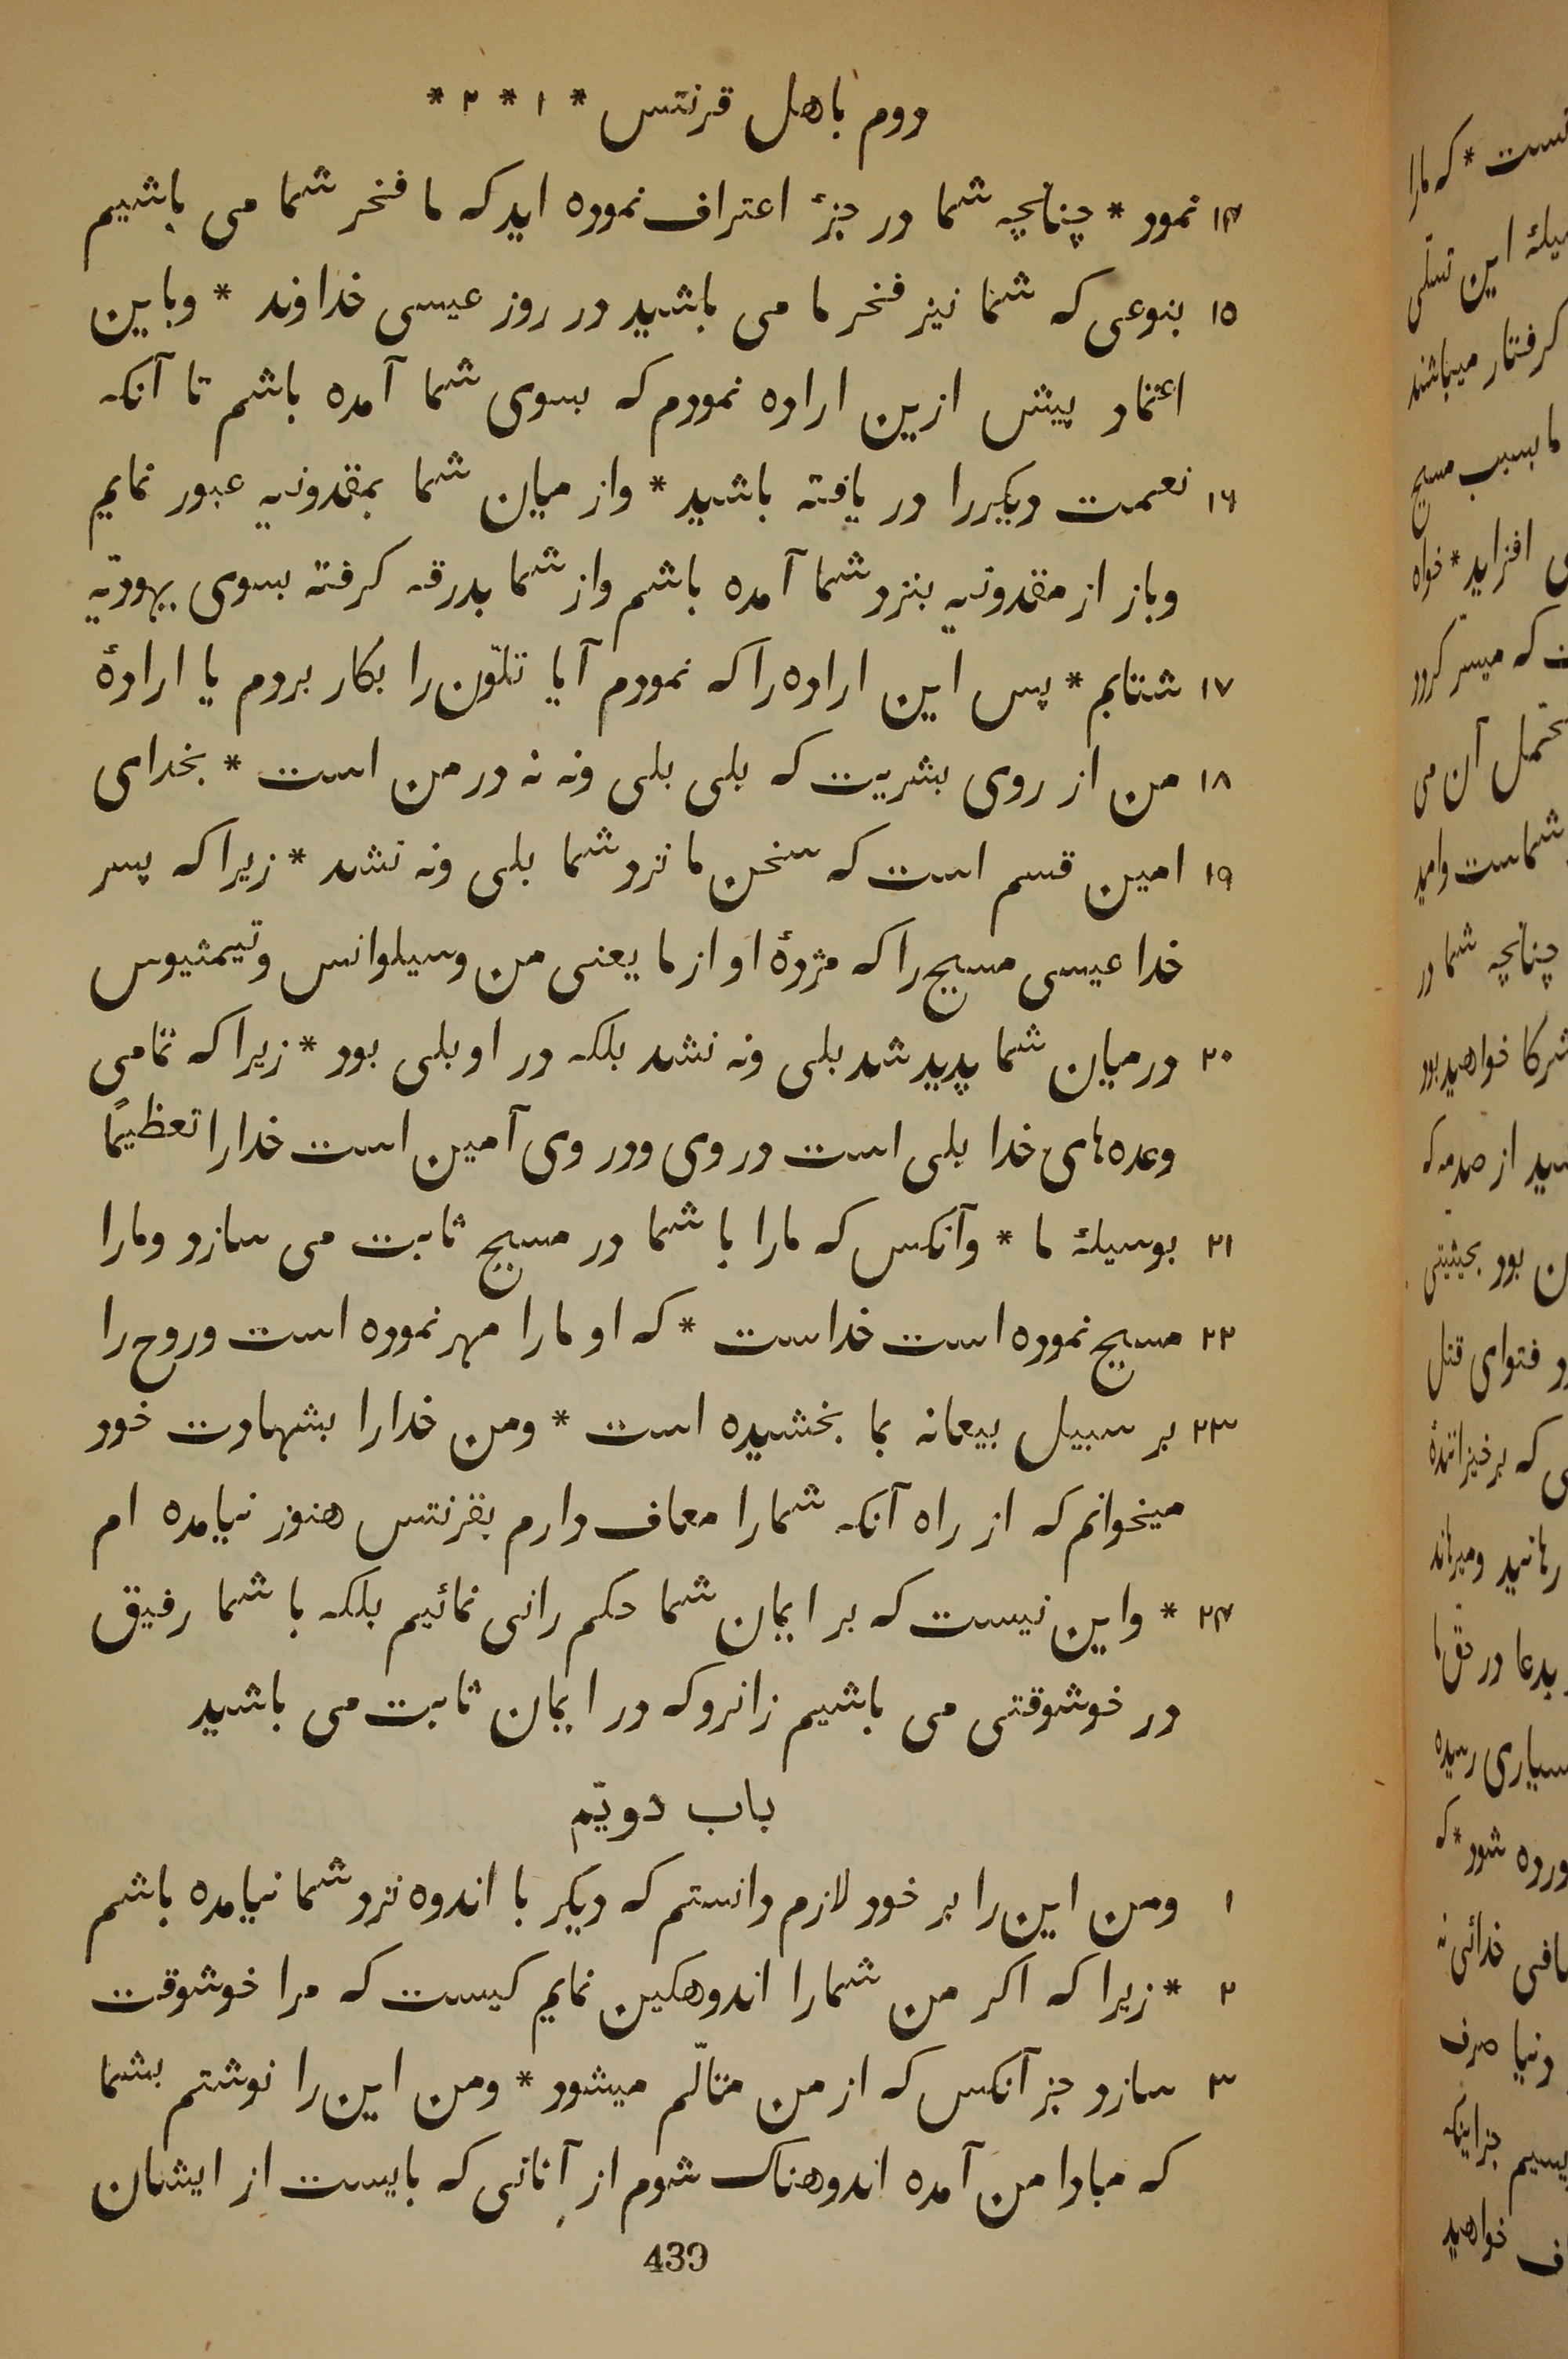 دوم باهل قرنتس * ۱ * ۲ *
۱۴ نمود * چنانچه شما در جزءٔ اعتراف نموده ایدکه ما فخر شما می باشیم
۱۵ بنوعی که شما نیز فخر ما می باشید در روز عیسی خداوند * وباین
اعتماد پیش ازین اراده نمودم که بسوی شما آمده باشم تا آنکه
۱۶ نعمت دیکررا در یافته باشید * واز میان شما بمقدونیه عبور نمایم
وباز از مقدونیه بنزد شما آمده باشم واز شما بدرقه کرفته بسوی یهودیّه
۱۷ شتابم * پس این اراده را که نمودم آیا تلوّن را بکار بردم یا ارادهٔ
۱۸ من از روی بشریت که بلی بلی ونه نه در من است * بخدای
۱۹ امین قسم است که سخن ما نزد شما بلی ونه نشد * زیرا که پسر
خدا عیسی مسیح را که مژدهٔ او از ما یعنی من وسیلوانس وتیمثیوس
۲۰ درمیان شما پدید شد بلی ونه نشد بلکه در او بلی بود * زیرا که تمامی
وعده‌های خدا بلی است در وی ودر وی آمین است خدارا تعظیمًا
۲۱ بوسیلهٔ ما * وآنکس که مارا با شما در مسیح ثابت می سازد ومارا
۲۲ مسیح نموده است خداست * که او مارا مهر نموده است وروح را
۲۳ بر سبیل بیعانه بما بخشیده است * ومن خدارا بشهادت خود
میخوانم که از راه آنکه شمارا معاف دارم بقرنتس هنوز نیامده ام
۲۴ * واین نیست که بر ایمان شما حکم رانی نمائیم بلکه با شما رفیق
در خوشوقتی می باشیم زانروکه در ایمان ثابت می باشید
باب دویّم
۱ ومن این را بر خود لازم دانستم که دیکر با اندوه نزد شما نیامده باشم
۲ * زیرا که اکر من شمارا اندوهکین نمایم کیست که مرا خوشوقت
۳ سازد جز آنکس که از من متالّم میشود * ومن این را نوشتم بشما
که مبادا من آمده اندوهناک شوم از آنانی که بایست از ایشان
439